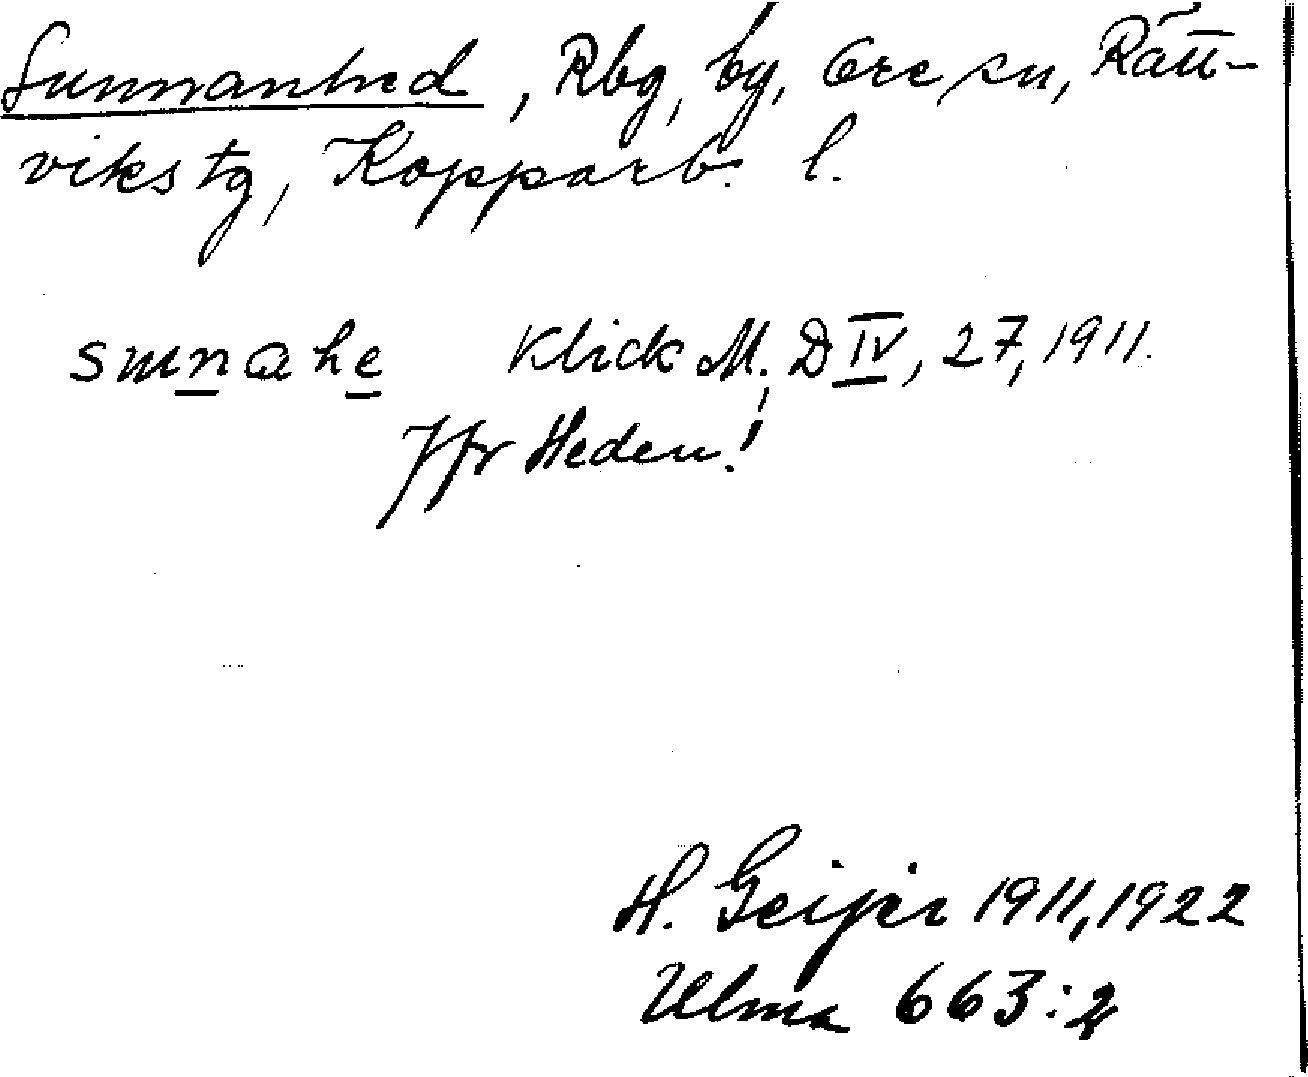 Sunnanhed, Rbg, by, Ore sn, Rätt-
viks tg, Kopparb. l.
sunahe Klick M, D IV, 27, 1911.
Jfr Heden!
H. Geijer 1911, 1922
Ulma 663:2